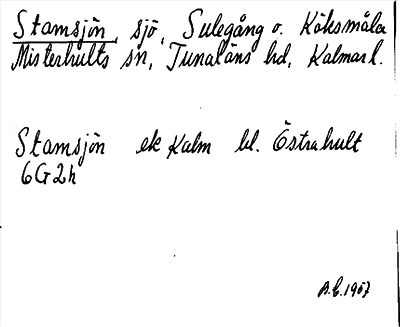 Stamsjön, sjö, Sulegång o. Köksmåla
Misterhults sn, Tunaläns hd, Kalmar l.
Stamsjön ek Kalm bl. Östrahult
6G2h
A.C. 1967